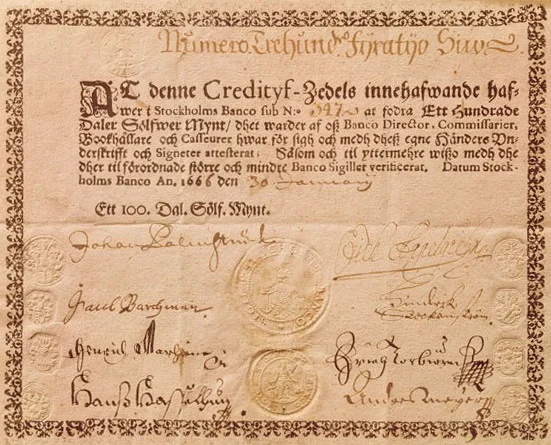 Numero Trehund: Fyratijo Siu
AT denne Credityf-Zedels innehafwande haf-
wer i Stockholms Banco sub N:o 347 at fodra Ett Hundrade
Daler Sölfwer Mynt/ dhet warder af oß Banco Director, Commissarier,
Bookhållare och Casseurer hwar för sigh och medh dheß egne Händers Vn-
derskrifft och Signeter attesterat; Såsom och til yttermehre wißo medh dhe
dher til förordnade större och mindre Banco Sigiller verificerat. Datum Stock-
holms Banco An. 1666 den 30 January
Ett 100. Dal. Sölf. Mynt.
Johan Palmstruck
Paul Barchman
Henrich
Hanß